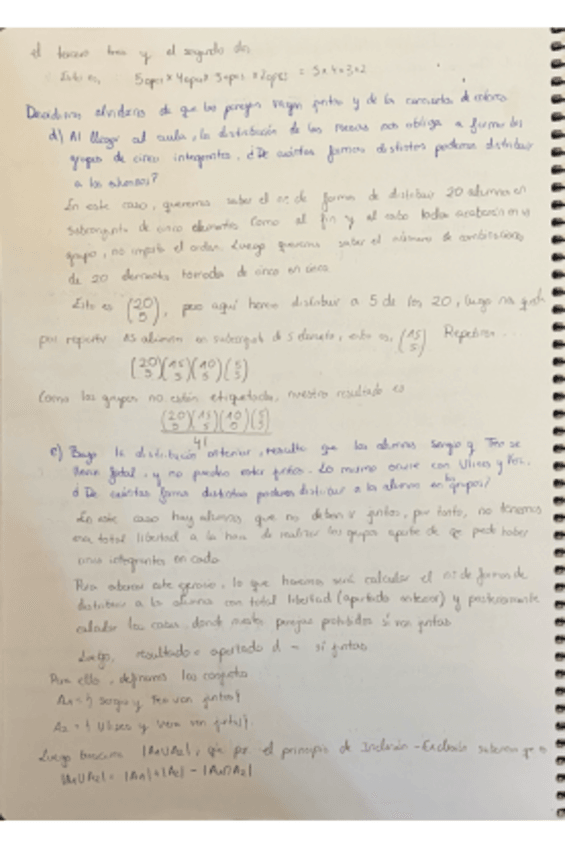 el tercero tres y el segundo dos
Esto es, 5 opci x 4 opci x 3 opci x 2 opci = 5x4x3x2
de que las parejas vayan juntas y de la camiseta de colores
d) Al llegar al aula, la distribución de las mesas nos obliga a formar los
grupos de cinco integrantes. ¿De cuántas formas distintas podemos distribuir
a los alumnos?
En este caso, queremos saber el nº de formas de distribuir 20 alumnos en
subconjuntos de cinco elementos. Como al fin y al cabo todos acabarán en
grupo, no importa el orden. Luego queremos saber el número de combinaciones
de 20 elementos tomados de cinco en cinco
Esto es (20 5), pero aquí hemos distribuir a 5 de los 20, luego nos
por repartir 15 alumnos en de 5 elementos, esto es, (15 5) Repetimos...
(20 5)(15 5)(10 5)(5 5)
Como los grupos no están etiquetados, nuestro resultado es
(20 5)(15 5)(10 5)(5 5)
4!
e) Bajo la distribución anterior, resulta que los alumnos Sergio y Teo se
llevan fatal, y no pueden estar juntos. Lo mismo ocurre con Ulises y
¿De cuántas formas distintas podemos distribuir a los alumnos en los grupos?
En este caso hay alumnos que no deben ir juntos, por tanto, no tenemos
esa total libertad a la hora de realizar los grupos aparte de que puede haber
cinco integrantes en cada
Para este, lo que haremos será calcular el nº de formas de
distribuir a los alumnos con total libertad (apartado anterior) y posteriormente
calcular los casos donde parejas prohibidas sí van juntas
Luego, resultado = apartado d - sí juntas
Para ello, definimos los conjuntos
A1 = { Sergio y Teo van juntos}
A2 = { Ulises y Vera van juntos}
Luego |A1UA2|, que por el principio de Inclusión-Exclusión sabemos que es
|A1UA2| = |A1|+|A2| - |A1∩A2|